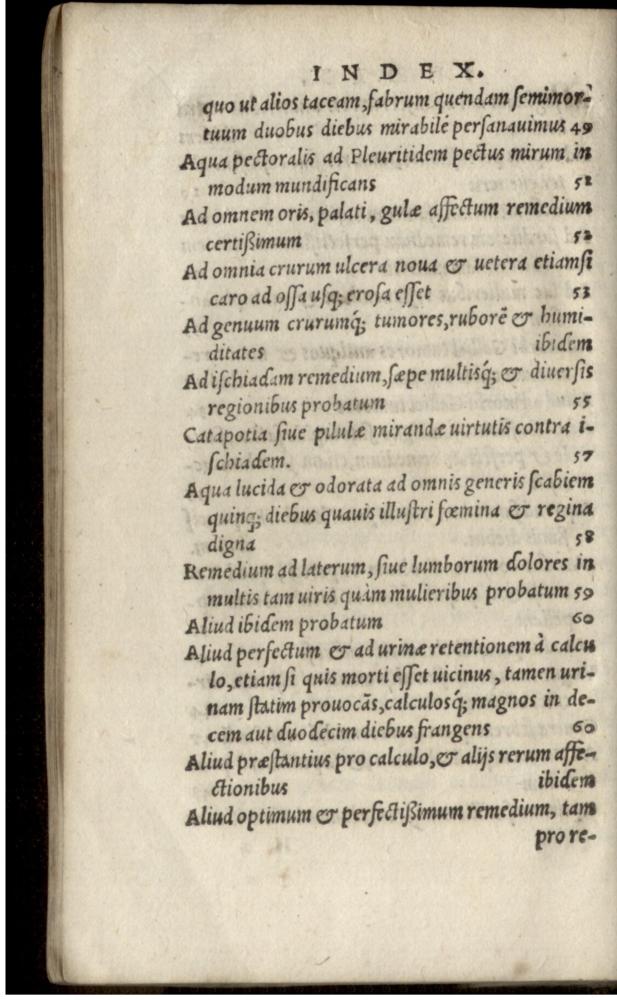 INDEX.
quo ut alios taceam, fabrum quendam semimor-
tuum duobus diebus mirabile persanauimus 49
Aqua pectoralis ad Pleuritidem pectus mirum in
modum mundificans 52
Ad omnem oris, palati, gulæ affectum remedium
certißimum 52
Ad omnia crurum ulcera noua & uetera etiamsi
caro ad ossa usq; erosa esset 53
Ad genuum crurumq́; tumores, ruborē & humi-
ditates ibidem
Ad ischiadam remedium, sæpe multisq́; & diuersis
regionibus probatum 55
Catapotia siue pilulæ mirandæ uirtutis contra i-
schiadem. 57
Aqua lucida & odorata ad omnis generis scabiem
quinq; diebus quauis illustri fœmina & regina
digna 58
Remedium ad laterum, siue lumborum dolores in
multis tam uiris quàm mulieribus probatum 59
Aliud ibidem probatum 60
Aliud perfectum & ad urinæ retentionem à calcu
lo, etiam si quis morti esset uicinus, tamen uri-
nam statim prouocãs, calculosq́; magnos in de-
cem aut duodecim diebus frangens 60
Aliud præstantius pro calculo, & alijs rerum affe-
ctionibus ibidem
Aliud optimum & perfectißimum remedium, tam
pro re-